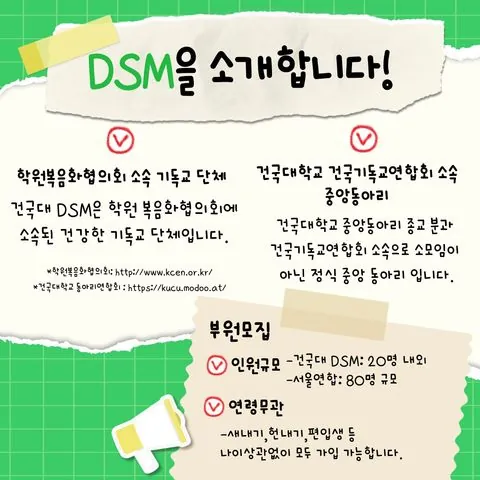 DSM을 소개합니다!
학원복음화협의회 소속 기독교 단체
건국대 DSM은 학원 복음화협의회에
소속된 건강한 기독교 단체입니다.
*학원복음화협의회: http://www.kcen.or.kr/
*건국대학교 동아리연합회 : https://kucu.modoo.at/
건국대학교 건국기독교연합회 소속
중앙동아리
건국대학교 중앙동아리 종교 분과
건국기독교연합회 소속으로 소모임이
아닌 정식 중앙 동아리 입니다.
부원모집
인원규모 -건국대 DSM: 20명 내외
-서울연합: 80명 규모
연령무관
-새내기,헌내기,편입생 등
나이상관없이 모두 가입 가능합니다.